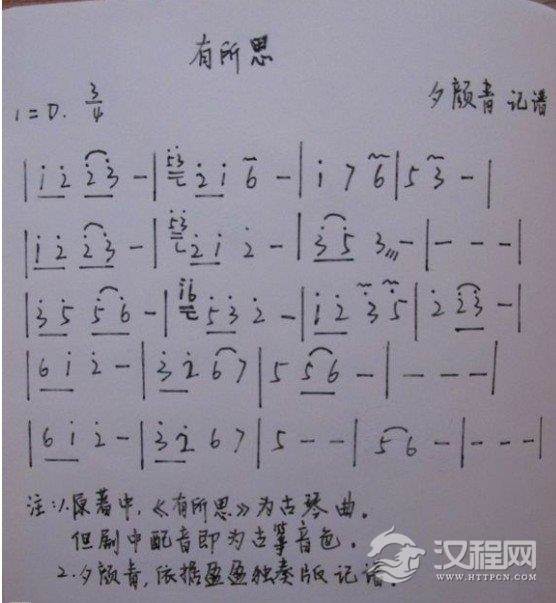 有所思
1=D. 3/4
夕颜青 记谱
| i 2 2 3 - | 53 2 1 6 - | i 7 6 | 5 3 - |
| i 2 2 3 - | 53 2 1 2 - | 3 5 3 - | - - - |
| 3 5 5 6 - | i6 5 3 2 - | i 2 3 5 | 2 2 3 - |
| 6 i 2 - | 3 2 6 7 | 5 5 6 - | - - - |
| 6 i 2 - | 3 2 6 7 | 5 - - | 5 6 - | - - - |
注:1.原著中,《有所思》为古琴曲。
但剧中配音即为古筝音色。
2.夕颜青,依据盈盈独奏版记谱。
汉程网
WWW.HTTPCN.COM